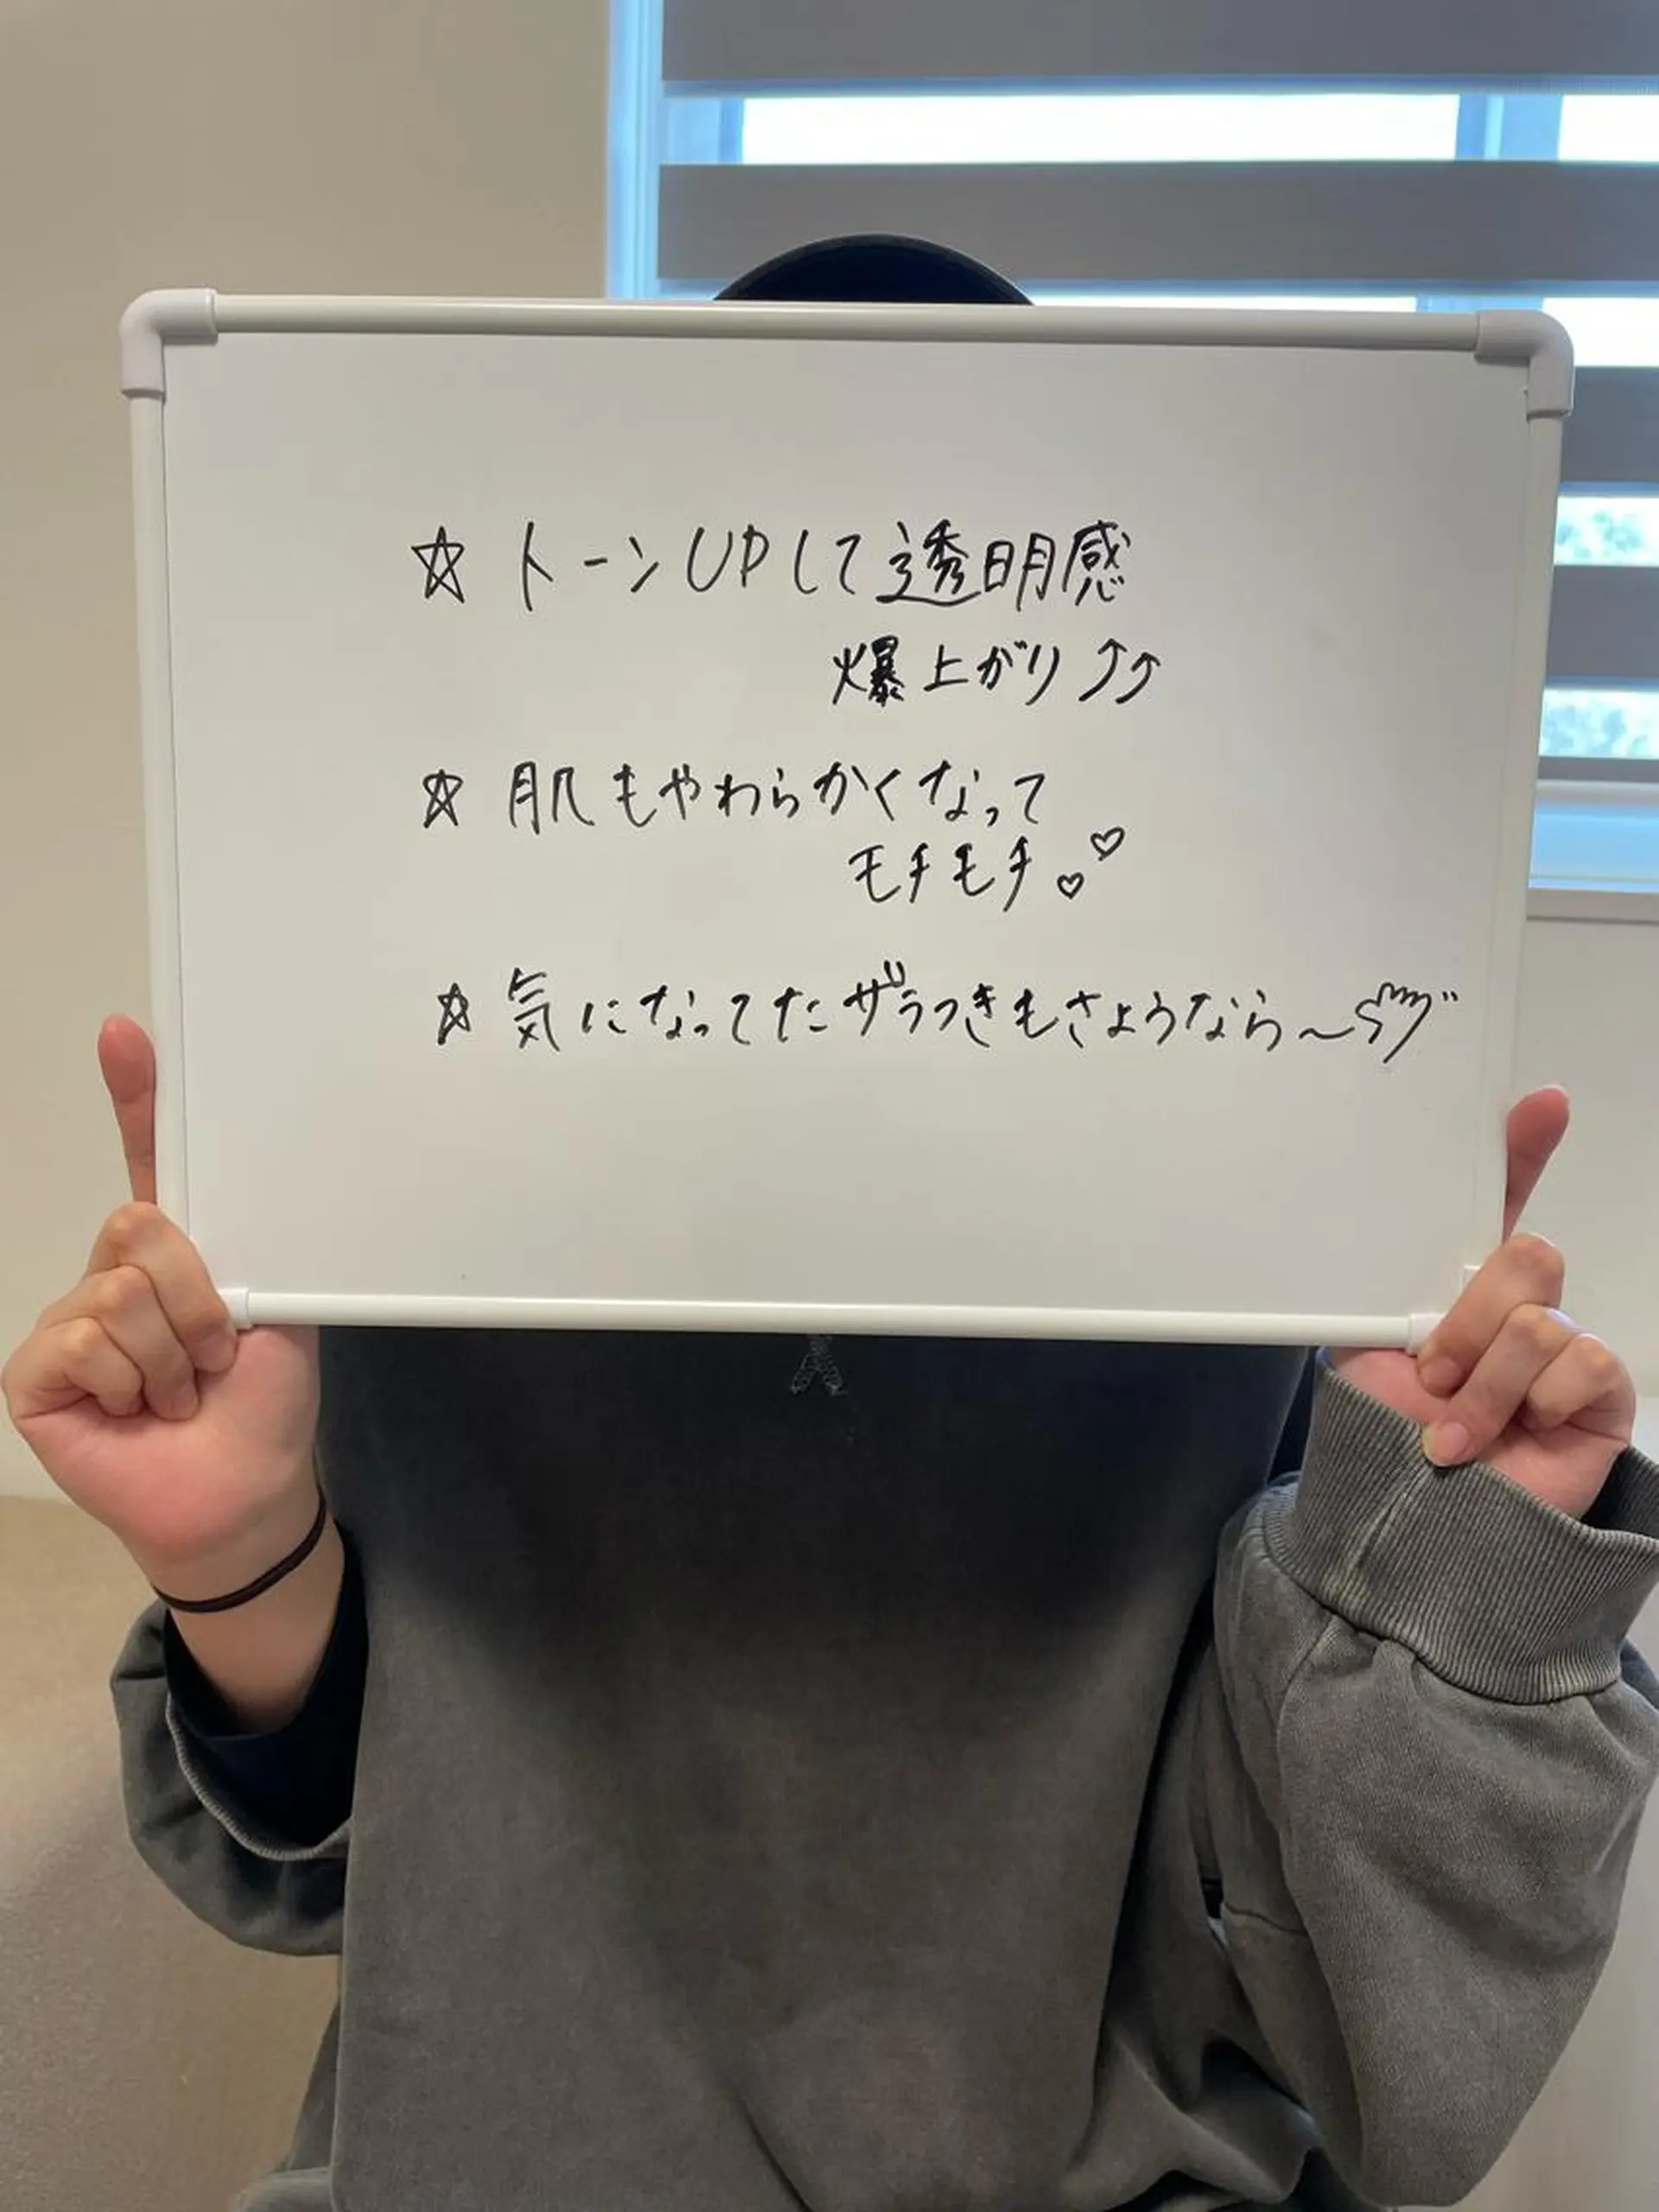 ☆ トーンUPして透明感
爆上がり⤴⤴
☆ 肌もやわらかくなって
モチモチ♡♡
☆ 気になってたザラつきもさようなら〜